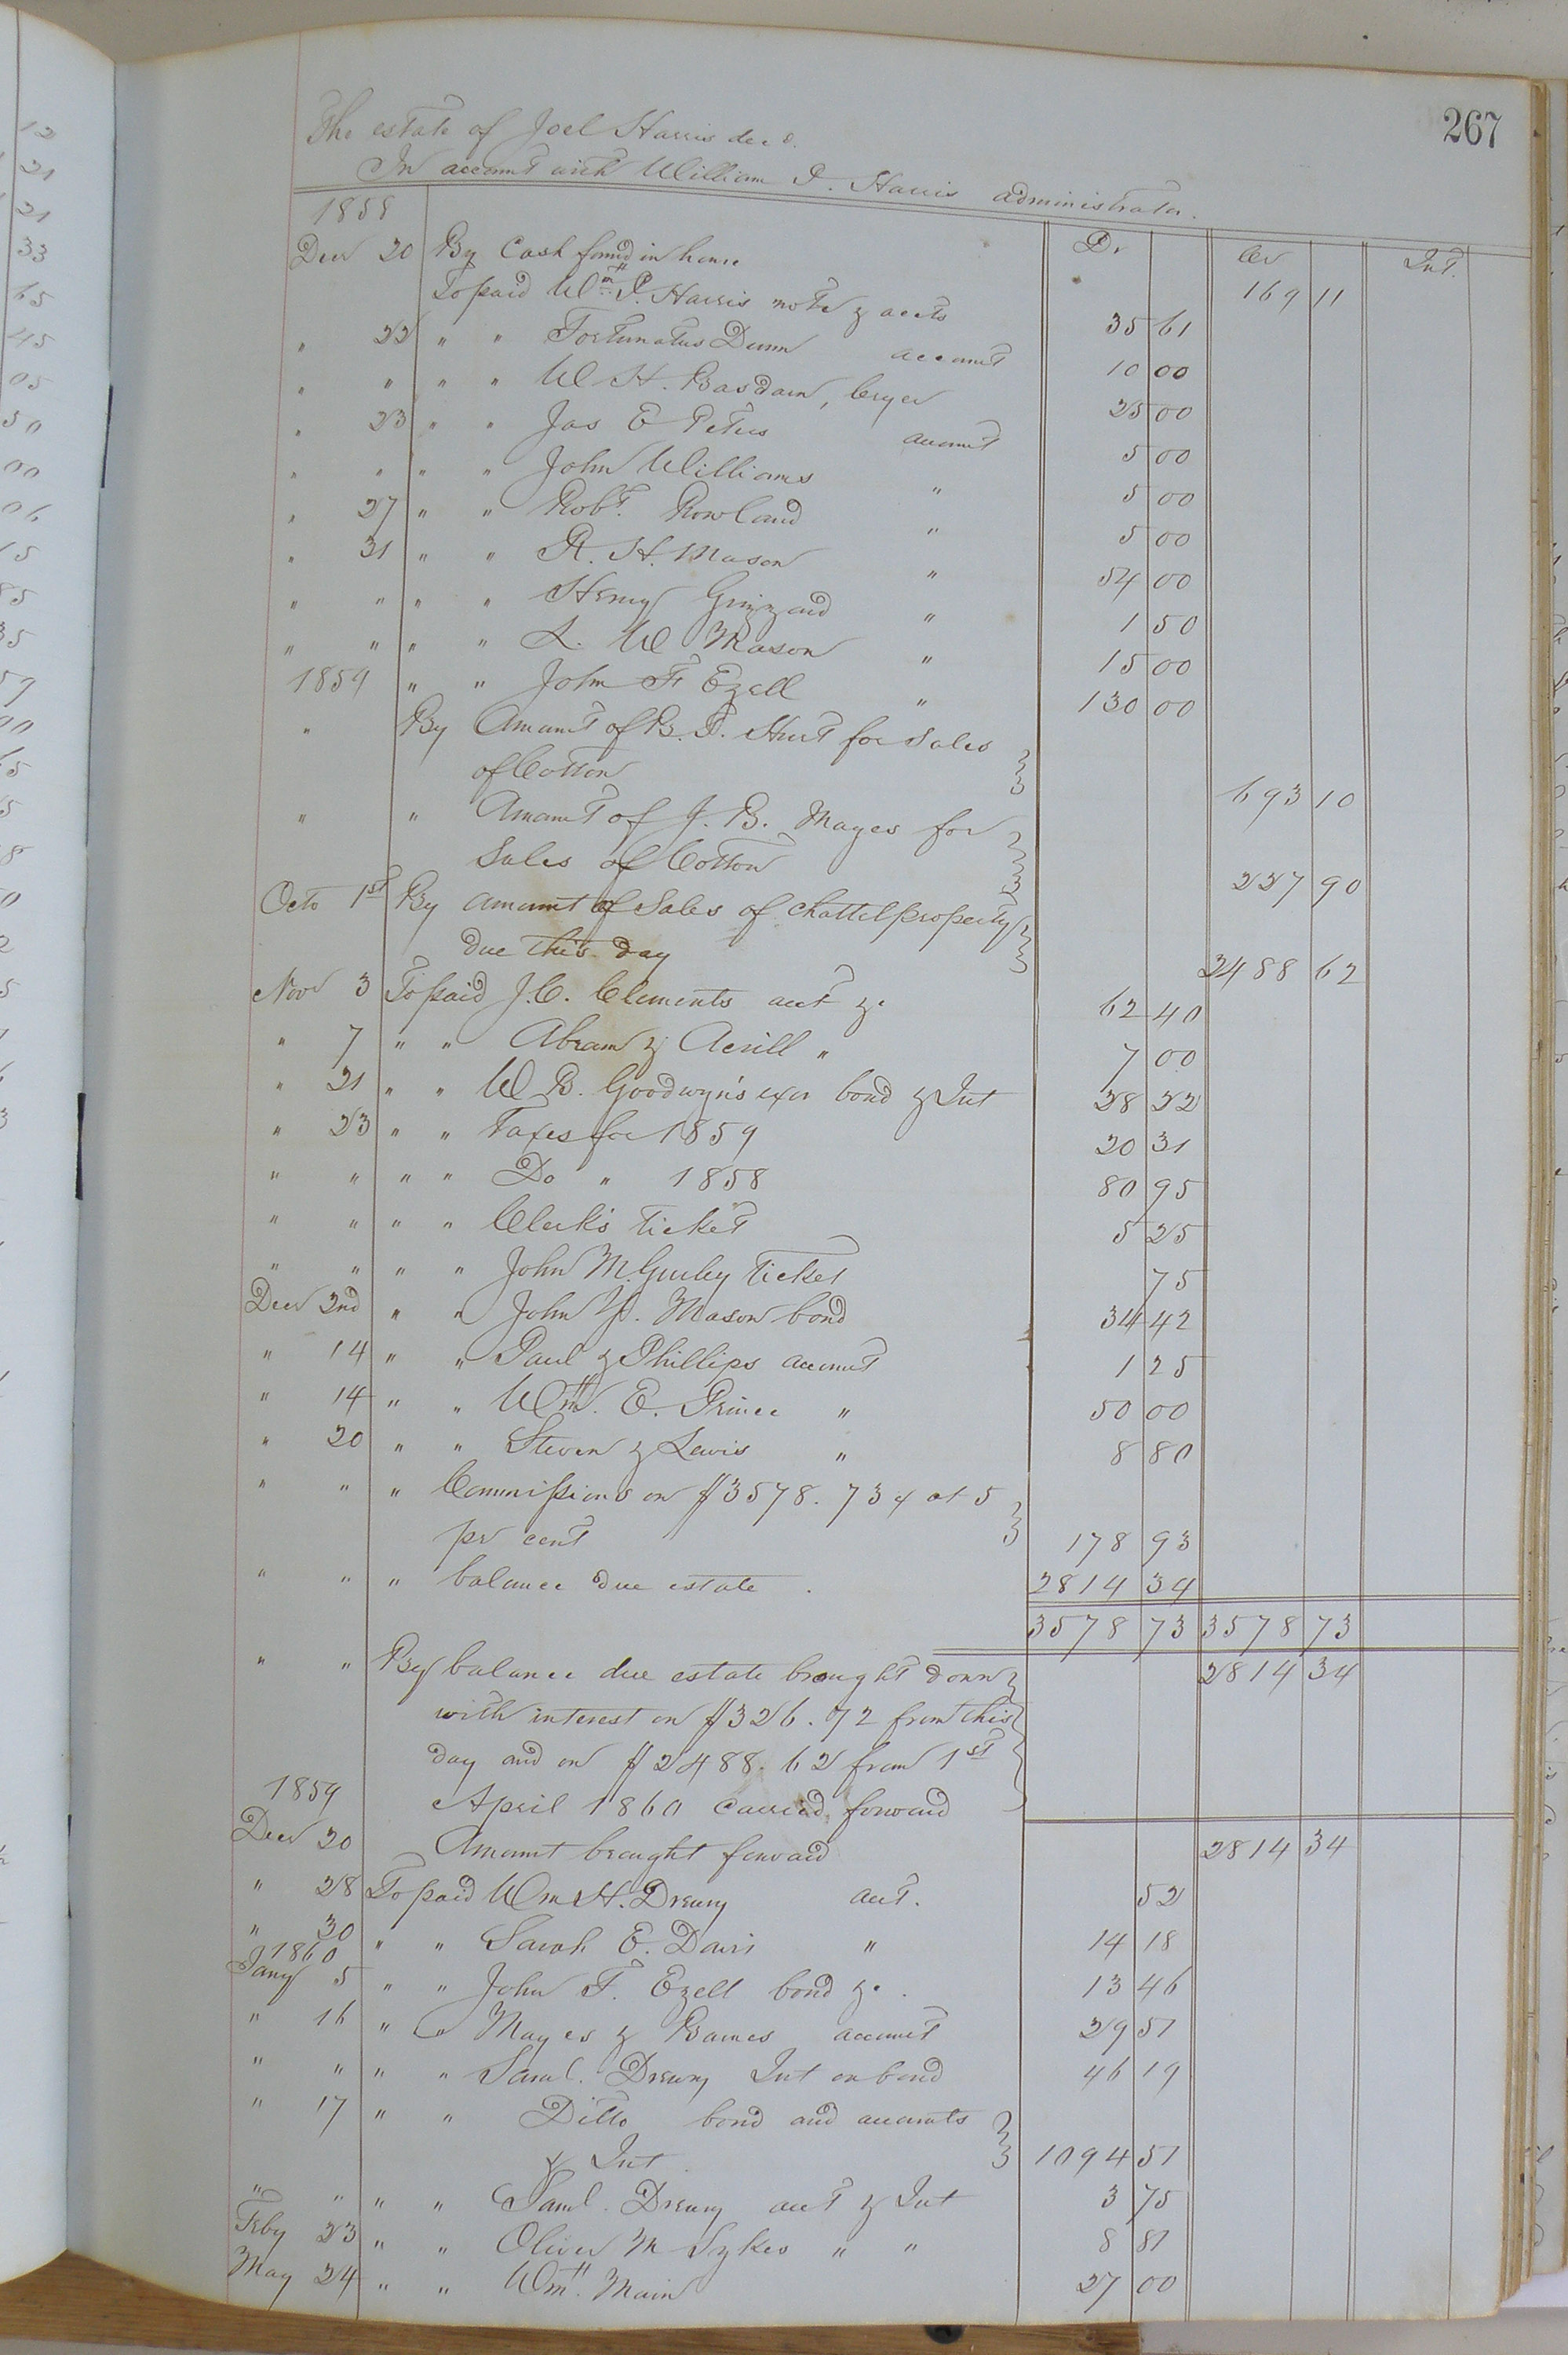 267
The estate of Joel Harris decd.
In account with William P. Harris administrator.
1858 Dr Cr Int.
Decr 20 By Cash found in house 169 11
To paid Wm. P. Harris note & accts 35 61
" 22 " " Fortunatus Dunn account 10 00
" " " " W H. Basdam, Cryer 25 00
" 23 " " Jas E Peters account 5 00
" " " " John Williams " 5 00
" 27 " " Robt. Rowland " 5 00
" 31 " " R. H. Mason " 54 00
" " " " Henry Grizzard " 1 50
" " " " L. W Mason " 15 00
1859 " " John F Ezell " 130 00
" By Amount of B. P. Hurt for Sales
of Cotton 693 10
" " Amount of J. B. Mayes for
Sales of Cotton 227 90
Octo 1st By amount of Sales of chattel property
due this day 2488 62
Novr 3 To paid J. C. Clements acct &c 62 40
" 7 " " Abram & Acrill " 7 00
" 21 " " W B. Goodwyn's exor bond & Int 28 22
" 23 " " Taxes for 1859 20 31
" " " " Do " 1858 80 95
" " " " Clerk's ticket 5 25
" " " " John M. Gurley ticket 75
Decr 2nd " " John Y. Mason bond 34 42
" 14 " " Paul & Phillips account 1 25
" 14 " " Wm. E. Prince " 50 00
" 20 " " Steven & Lewis " 8 80
" " " Commissions on $3578.73 at 5
pr cent 178 93
" " " balance due estate. 2814 34
3578 73 3578 73
" " By balance due estate brought down 2814 34
with interest on $326.72 from this
day and on $2488.62 from 1st
April 1860 carried forward
1859
Decr 20 Amount brought forward 2814 34
" 28 To paid Wm H. Drewry acct. 52
" 30 " " Sarah E. Davis " 14 18
1860
Jany 5 " " John F. Ezell bond &c. 13 46
" 16 " " Mayes & Barnes account 29 51
" " " " Saml. Drewry Int on bond 46 19
" 17 " " Ditto bond and accounts
& Int 1094 51
" " " " Saml. Drewry acct & Int 3 75
Feby 23 " " Oliver M Sykes " " 8 81
May 24 " " Wm. Main 27 00